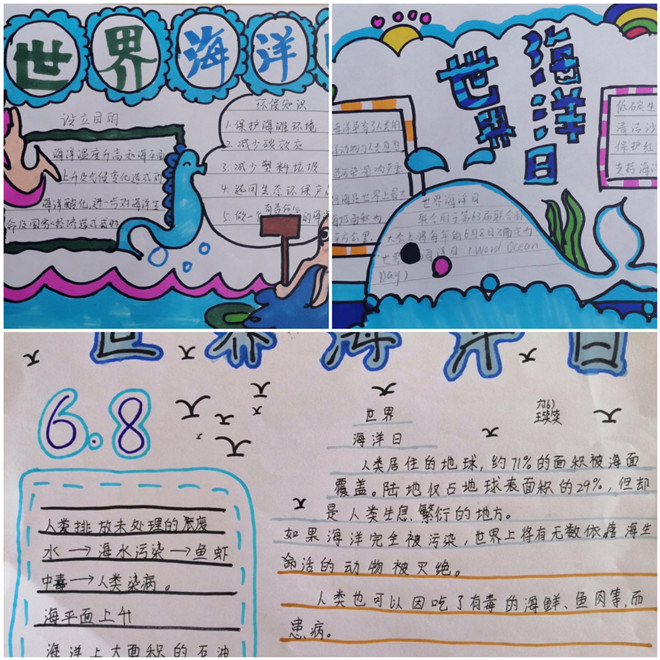 世界海洋
设立目的
海洋温度升高和海平面
上升及气候变化造成对
海洋酸化进一步对海洋生
命及国家经济造成或的
环保知识
1.保护海滩环境
2.减少碳效应
3.减少塑料垃圾
4.选用生态环保产品
5.做一个
世界海洋日
世界海洋日
联合国于第63届联合国
大会上将每年的6月8日确定为
"世界海洋日(Word Ocean
Day)
低碳生
清洁海
保护红
支持海
世界海洋日
6.8
人类排放未处理的
水→海水污染→鱼虾
中毒→人类染病。
海平面上升
海洋上大面积的石油
世界
海洋日
六(6)
人类居住的地球,约71%的面积被海面
覆盖。陆地仅占地球表面积的29%,但却
是人类生息、繁衍的地方。
如果海洋完全被污染,世界上将有无数依借海生
命活的动物被灭绝。
人类也可以因吃了有毒的海鲜、鱼肉等,而
患病。